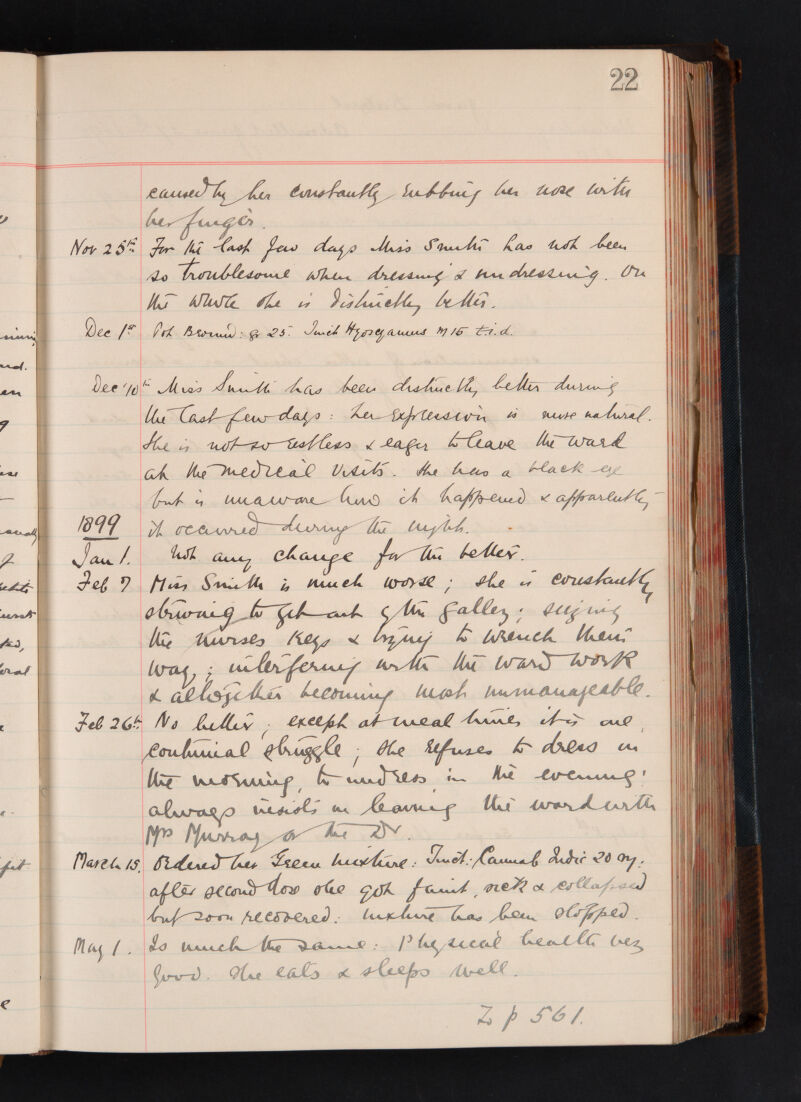 22
caused by her constantly rubbing her nose with
her finger.
Nov 25th For the last few days Miss Smith has not been
so troublesome when dressing & undressing. On
the whole she is distinctly better.
Dec 1st Pot Bromid: gr 25. Tinct Hyoscyamus M 15 t.i.d.
Dec 10th Miss Smith has been distinctly better during
the last few days: her expression is more natural.
She is not so restless & eager to leave the ward
at the medical visits. She has a black eye
but is unaware how it happened & apparently
1899 it occurred during the night.
Jan 1. Not any change for the better.
Feb 7 Miss Smith is much worse; she is constantly
striving to get out of the gallery; seizing
the nurses keys & trying to wrench them
way,; interfering with the ward work
& altogether becoming most unmanageable.
Feb 26th No better; except at meal times it is one
continual struggle; she refuses to dress in
the morning, to undress in the evening:
always insists on leaving the ward with
Mrs Murray or the Dr.
March 15. Ordered her Green mixture: Tinct: Cannab Indic 20
after second dose she got faint, sick & collapsed
but soon recovered: mixture has been stopped.
May 1. Is much the same: Physical health very
good. She eats & sleeps well.
To p 561.